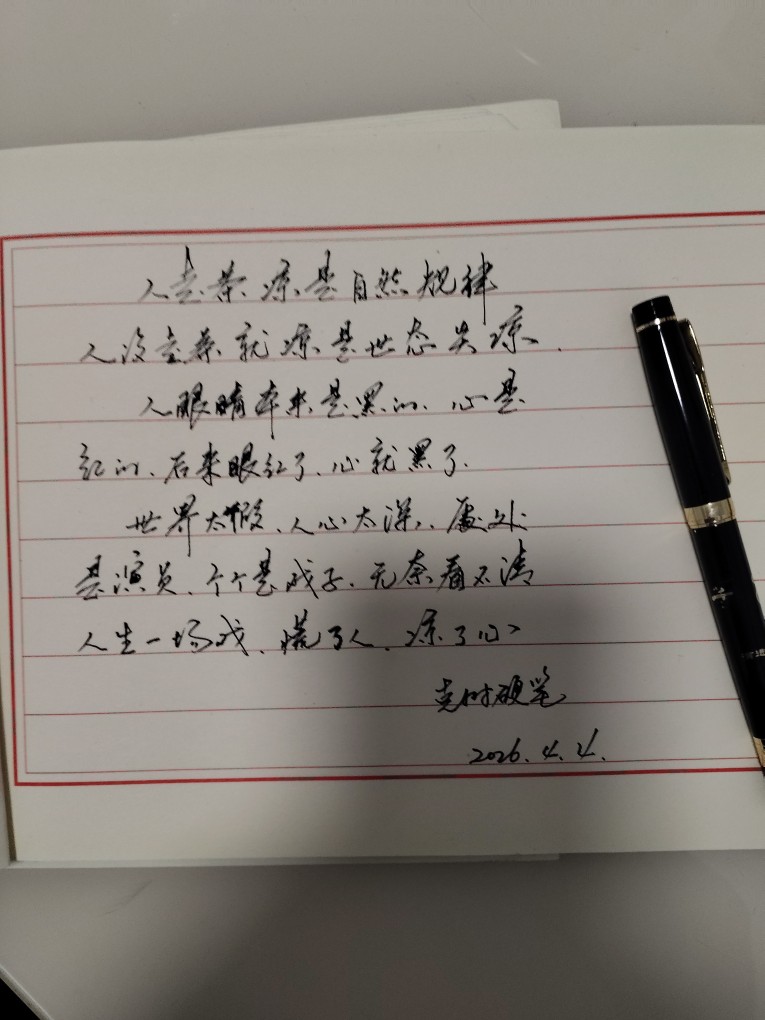 人走茶凉是自然规律
人没走茶就凉是世态炎凉.
人眼睛本来是黑的、心是
红的、后来眼红了、心就黑了.
世界太假、人心太深、处处
是演员、个个是戏子、无奈看不清
人生一场戏、慌了人、凉了心
克时硬笔
2026.4.4.